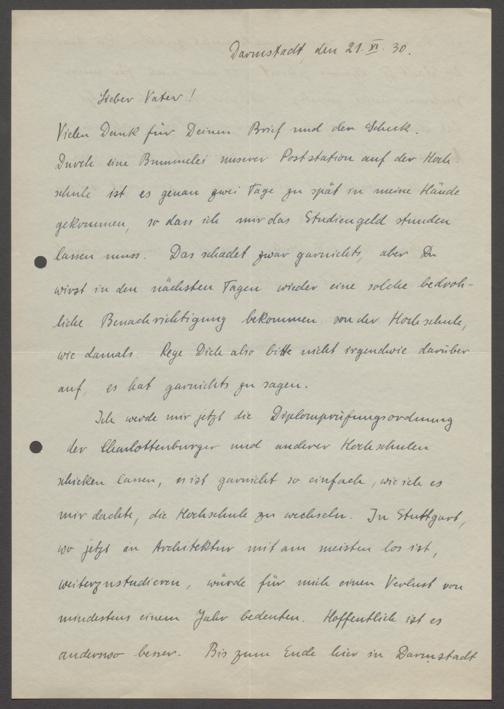 Darmstadt, den 21. XI. 30.
Lieber Vater!
Vielen Dank für Deinen Brief und den Scheck.
Durch eine Bummelei unserer Poststation auf der Hoch
schule ist es genau zwei Tage zu spät in meine Hände
gekommen, so dass ich mir das Studiengeld stunden
lassen muss. Das schadet zwar garnichts, aber Du
wirst in den nächsten Tagen wieder eine solche bedroh-
liche Benachrichtigung bekommen von der Hochschule,
wie damals. Rege Dich also bitte nicht irgendwie darüber
auf, es hat garnichts zu sagen.
Ich werde mir jetzt die Diplomprüfungsordnung
der Charlottenburger und anderer Hochschulen
schicken lassen, es ist garnicht so einfach, wie ich es
mir dachte, die Hochschule zu wechseln. In Stuttgart,
wo jetzt an Architektur mit am meisten los ist,
weiterzustudieren, würde für mich einen Verlust von
mindestens einem Jahr bedeuten. Hoffentlich ist es
anderswo besser. Bis zum Ende hier in Darmstadt